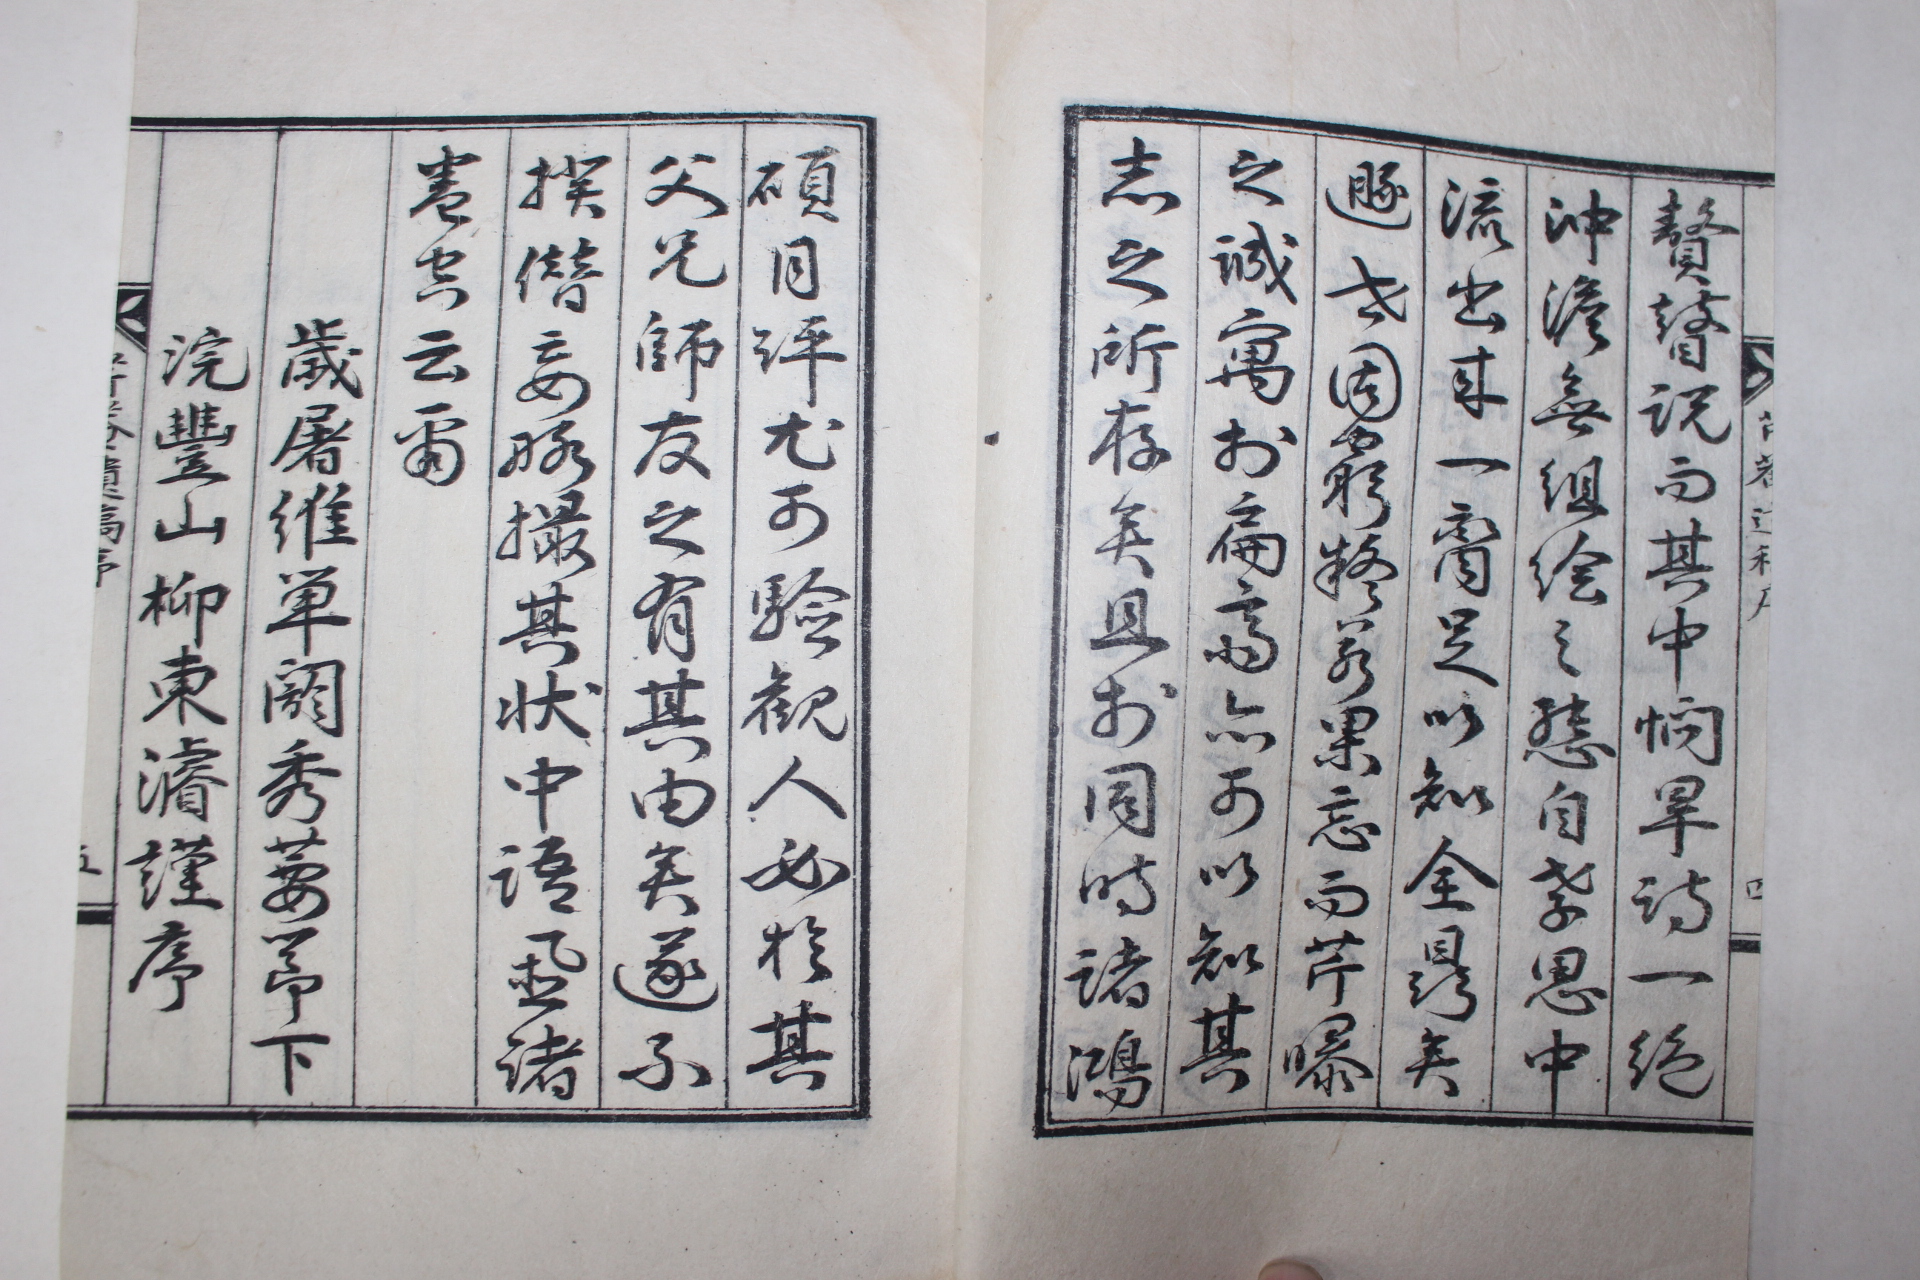 贅瞽說而其中憫旱詩一絶
沖澹無組繪之態自孝思中
流出來一臠足以知全鼎矣
遯世固窮 若果忘而芹曝
之誠寓於扁齋亦可以知其
志之所存矣且於同時諸鴻
碩月評尤可驗觀人必於其
父兄師友之有其由矣遂不
揆僭妄略撮其狀中語弁諸
卷首云爾
歲屠維單閼秀葽節下
浣豐山柳東濬謹序
四
五